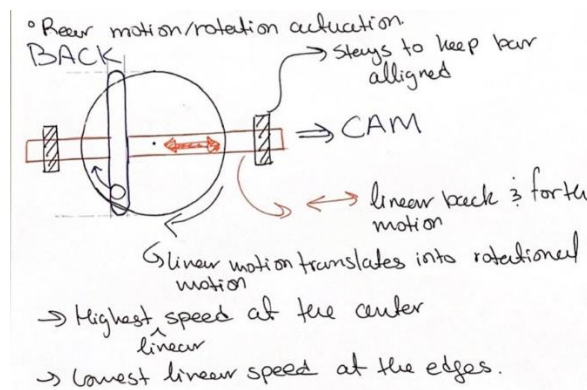 ° Rear motion/rotation actuation.
BACK
→ stays to keep bar
alligned
⇒ CAM
↔ linear back & forth
motion
↳ linear motion translates into rotational
motion
→ Highest linear speed at the center
→ Lowest linear speed at the edges.